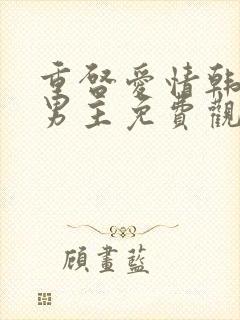 重啓愛情韓
男主免費觀
顧畫藍